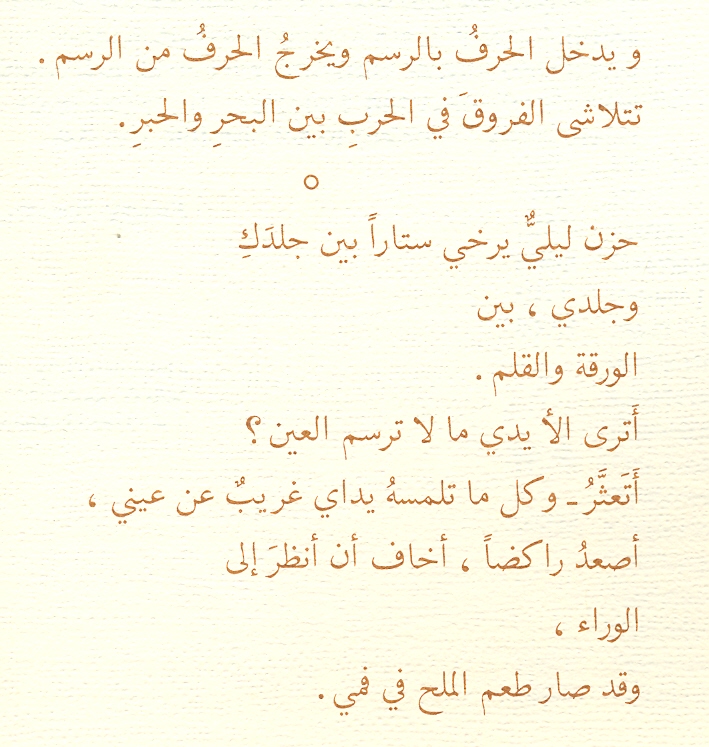 و يدخل الحرفُ بالرسم ويخرجُ الحرفُ من الرسم .
تتلاشى الفروقَ في الحربِ بين البحرِ والحبرِ .
حزن ليليٌّ يرخي ستاراً بين جلدَكِ
وجلدي ، بين
الورقة والقلم .
أَترى الأ يدي ما لا ترسم العين ؟
أَتَعثَّرُ ــ وكل ما تلمسهُ يداي غريبٌ عن عيني ،
أصعدُ راكضاً ، أخاف أن أنظرَ إلى
الوراء ،
وقد صار طعم الملح في فمي .